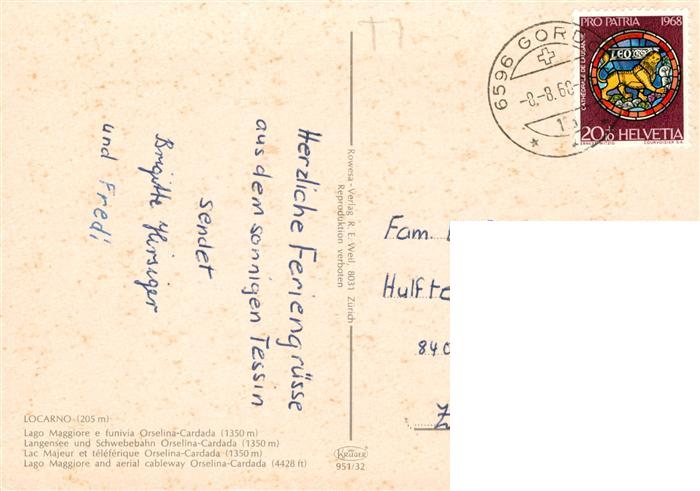 Herzliche Feriengrüsse
aus dem sonnigen Tessin
sendet
Brigitte Hirsiger
und Fredi
LOCARNO (205 m)
Lago Maggiore e funivia Orselina-Cardada (1350 m)
Langensee und Schwebebahn Orselina-Cardada (1350 m)
Lac Majeur et téléférique Orselina-Cardada (1350 m)
Lago Maggiore and aerial cableway Orselina-Cardada (4428 ft)
Rowesa-Verlag R. E. Weil, 8031 Zürich
Reproduktion verboten
KRÜGER
951/32
6596 GORD
-8.-8.68-
PRO PATRIA 1968
CATHÉDRALE DE LAUSANNE
LEO
20 HELVETIA
COURVOISIER S.A.
Fam.
Hulfte
840